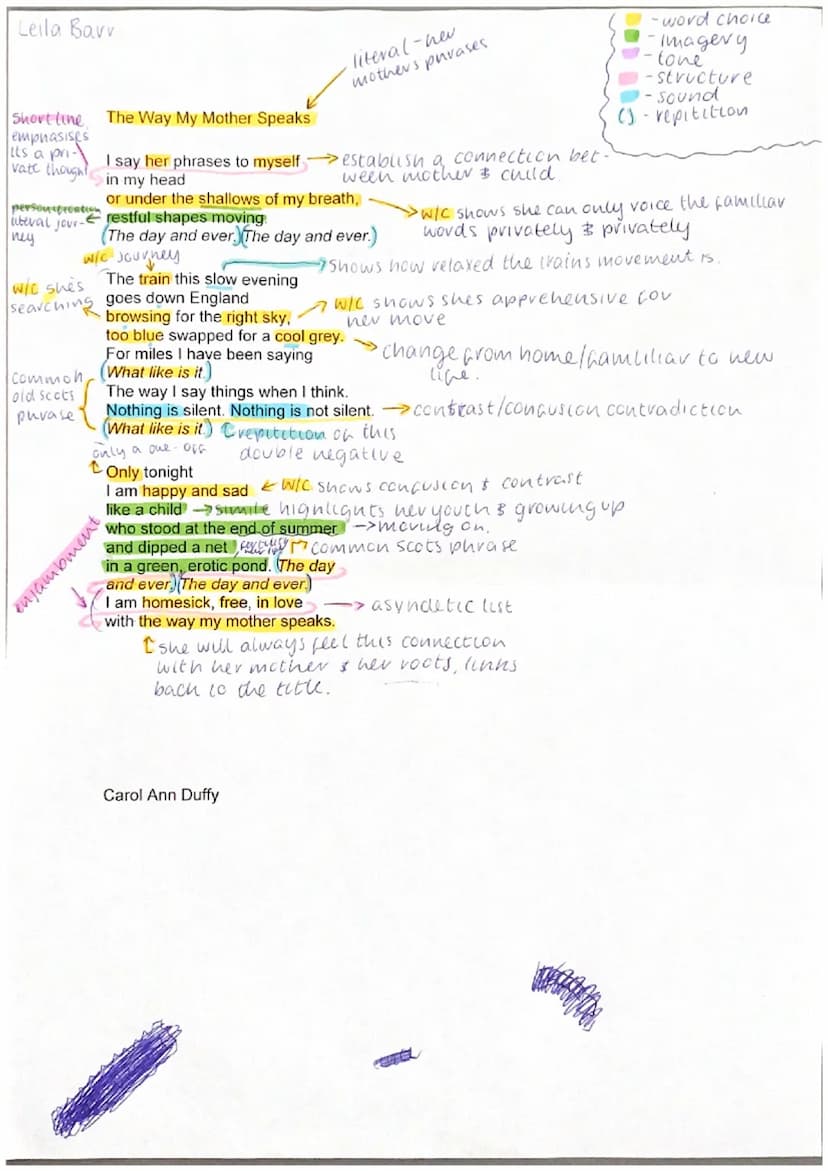 Leila Barr
- word choice
- imagery
- tone
- structure
- sound
() - repitition
literal - her
mothers phrases
The Way My Mother Speaks
Short line
emphasises
its a pri-
vate thought
I say her phrases to myself
in my head
or under the shallows of my breath,
restful shapes moving.
(The day and ever.)(The day and ever.)
establish a connection bet-
ween mother & child
w/c shows she can only voice the familiar
words privately & privately
personification
literal jour-
ney
w/c journey
Shows how relaxed the trains movement is.
The train this slow evening
goes down England
browsing for the right sky,
too blue swapped for a cool grey.
For miles I have been saying
(What like is it.)
The way I say things when I think.
Nothing is silent. Nothing is not silent.
(What like is it.)
w/c she's
searching
w/c shows shes apprehensive for
her move
change from home/familiar to new
life.
common
old scots
phrase
contrast/confusion contradiction
repitition of this
double negative
only a one-off
Only tonight
I am happy and sad
like a child
who stood at the end of summer
and dipped a net
in a green, erotic pond. (The day
and ever.)(The day and ever.)
I am homesick, free, in love
with the way my mother speaks.
w/c shows confusion & contrast
simile highlights her youth & growing up
moving on.
common scots phrase
enjambment
asyndetic list
she will always feel this connection
with her mother & her roots, links
back to the title.
Carol Ann Duffy